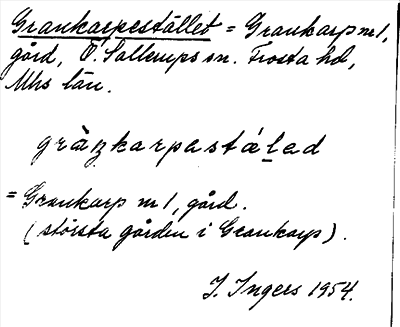 Grankarpestället = Grankarp nr 1,
gård, Ö. Sallerups sn. Frosta hd,
Mhs län.
gràŋkarpastálad
= Grankarp nr 1, gård.
(största gården i Grankarp).
I. Ingers 1954.